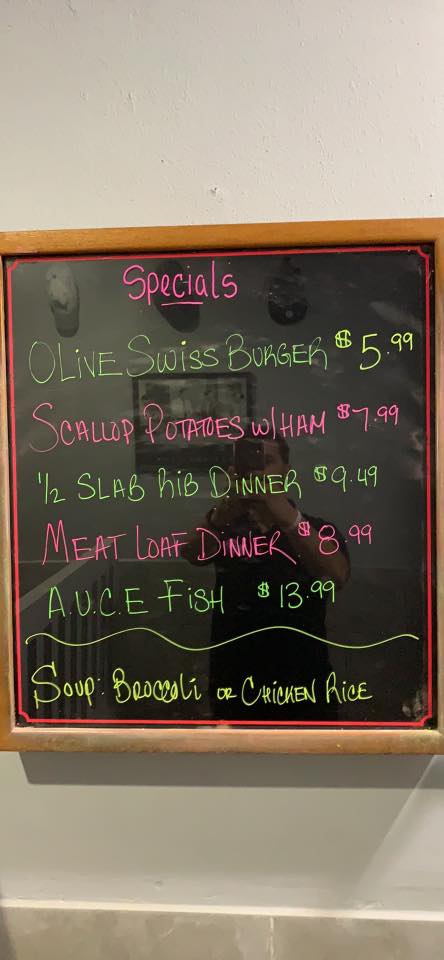 Specials
OLIVE SWISS BURGER $5.99
SCALLOP POTATOES W/HAM $7.99
1/2 SLAB RIB DINNER $9.49
MEAT LOAF DINNER $8.99
A.U.C.E FISH $13.99
SOUP: BROCCOLI OR CHICKEN RICE